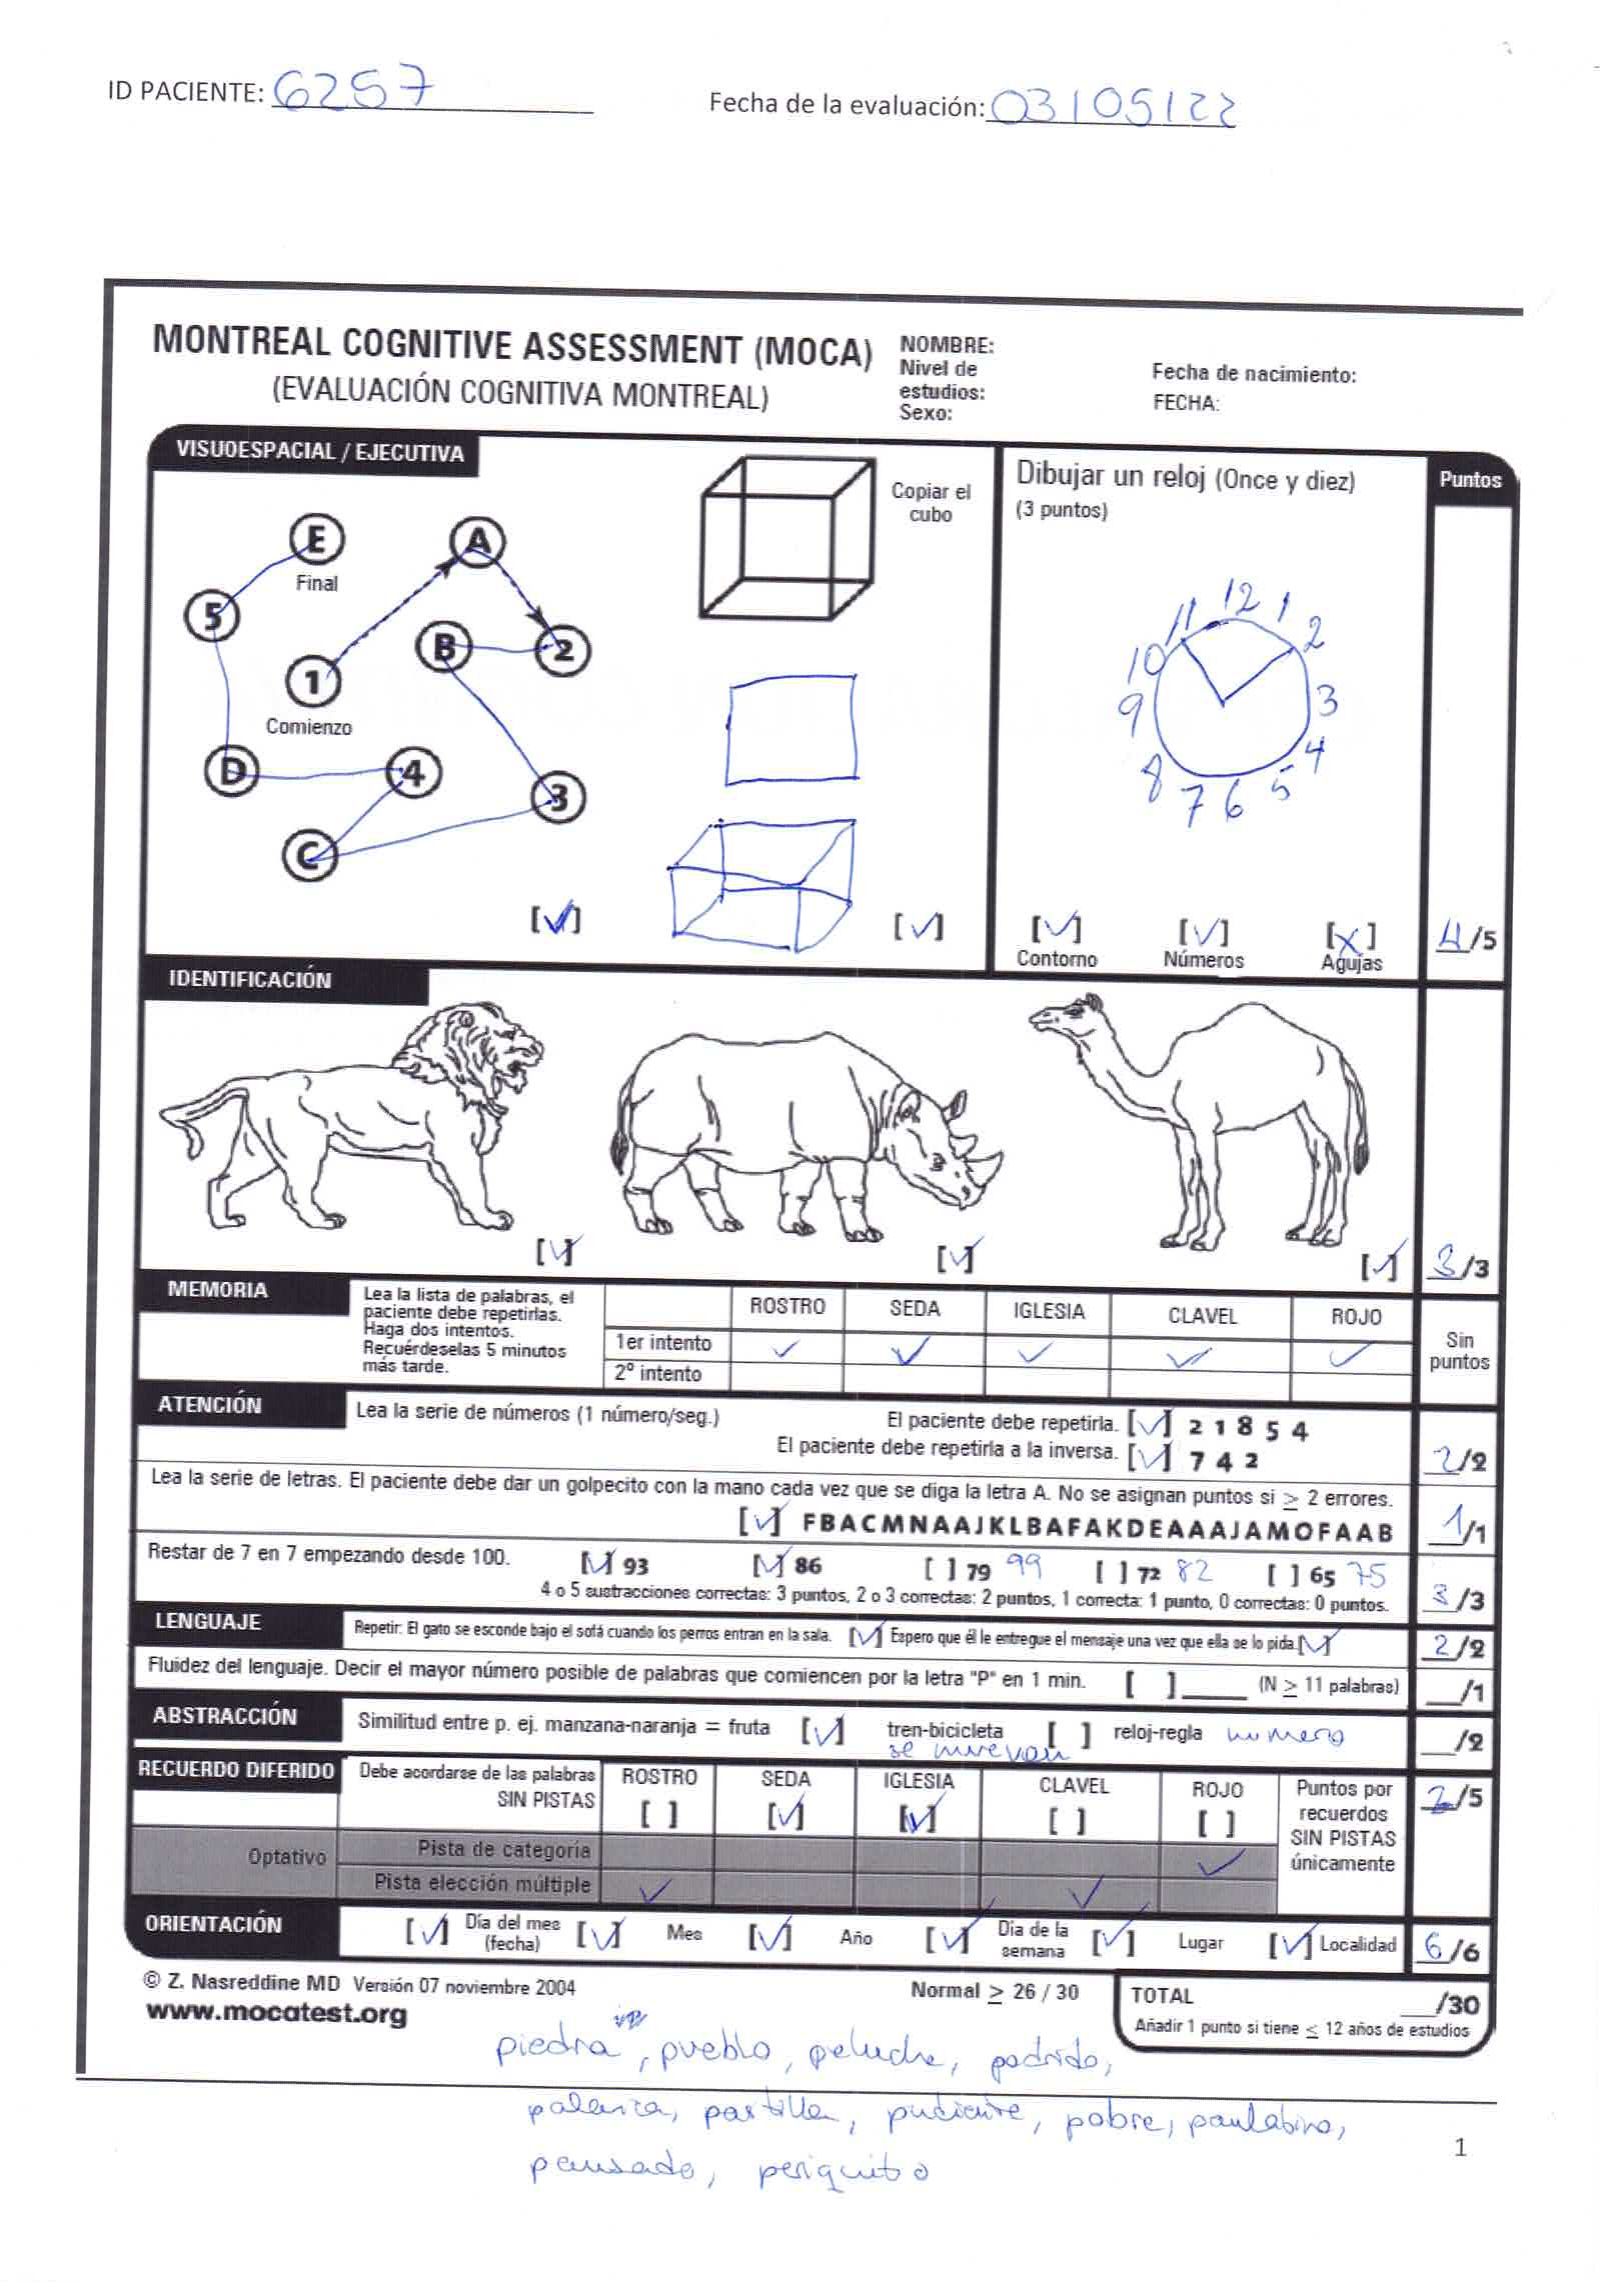 ID PACIENTE: 6257
Fecha de la evaluación: 03/05/22
MONTREAL COGNITIVE ASSESSMENT (MOCA)
(EVALUACIÓN COGNITIVA MONTREAL)
NOMBRE:
Nivel de
estudios:
Sexo:
Fecha de nacimiento:
FECHA:
VISUOESPACIAL / EJECUTIVA
E
Final
A
5
B
2
1
Comienzo
D
4
3
C
[✓]
Copiar el
cubo
[✓]
Dibujar un reloj (Once y diez)
(3 puntos)
12
11 1
10 2
9 3
8 4
7 6 5
[✓] [✓] [x]
Contorno Números Agujas
Puntos
4/5
IDENTIFICACIÓN
[✓] [✓] [✓] 3/3
MEMORIA
Lea la lista de palabras, el
paciente debe repetirlas.
Haga dos intentos.
Recuérdeselas 5 minutos
más tarde.
ROSTRO SEDA IGLESIA CLAVEL ROJO
1er intento ✓ ✓ ✓ ✓ ✓
2º intento
Sin
puntos
ATENCIÓN
Lea la serie de números (1 número/seg.) El paciente debe repetirla. [✓] 2 1 8 5 4
El paciente debe repetirla a la inversa. [✓] 7 4 2 2/2
Lea la serie de letras. El paciente debe dar un golpecito con la mano cada vez que se diga la letra A. No se asignan puntos si ≥ 2 errores.
[✓] FBACMNAAJKLBAFAKDEAAAJAMOFAAB 1/1
Restar de 7 en 7 empezando desde 100. [✓] 93 [✓] 86 [ ] 79 99 [ ] 72 82 [ ] 65 75
4 o 5 sustracciones correctas: 3 puntos, 2 o 3 correctas: 2 puntos, 1 correcta: 1 punto, 0 correctas: 0 puntos. 3/3
LENGUAJE
Repetir: El gato se esconde bajo el sofá cuando los perros entran en la sala. [✓] Espero que él le entregue el mensaje una vez que ella se lo pida. [✓] 2/2
Fluidez del lenguaje. Decir el mayor número posible de palabras que comiencen por la letra "P" en 1 min. [ ] ____ (N ≥ 11 palabras) __/1
ABSTRACCIÓN
Similitud entre p. ej. manzana-naranja = fruta [✓] tren-bicicleta [ ] reloj-regla numero __/2
se muevan
RECUERDO DIFERIDO
Debe acordarse de las palabras
SIN PISTAS
ROSTRO SEDA IGLESIA CLAVEL ROJO
[ ] [✓] [✓] [ ] [ ]
Puntos por
recuerdos
SIN PISTAS
únicamente
2/5
Optativo
Pista de categoría ✓
Pista elección múltiple ✓ ✓
ORIENTACIÓN
[✓] Día del mes (fecha) [✓] Mes [✓] Año [✓] Día de la semana [✓] Lugar [✓] Localidad 6/6
© Z. Nasreddine MD Versión 07 noviembre 2004
www.mocatest.org
Normal ≥ 26 / 30
TOTAL __/30
Añadir 1 punto si tiene ≤ 12 años de estudios
piedra, pueblo, peluche, podrido,
palanca, pastilla, pudiente, pobre,
pausado, periquito
1